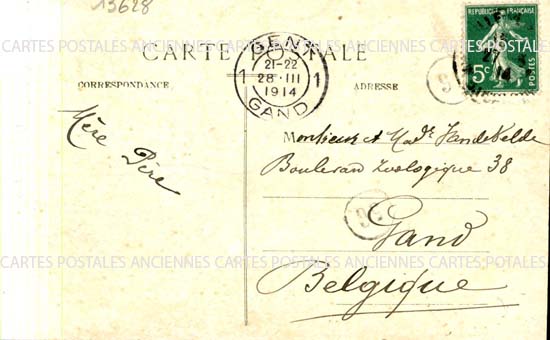 13628
CARTE POSTALE
CORRESPONDANCE
ADRESSE
GENT
1 21-22 1
28 III
1914
GAND
REPUBLIQUE FRANÇAISE
5c
POSTES
CARTES POSTALES ANCIENNES CARTES POSTALES ANCIENNES CARTES POSTALES ANCIENNES
Mère Père
Monsieur et Made Vandevelde
Boulevard Zoologique 38
Gand
Belgique
CARTES POSTALES ANCIENNES CARTES POSTALES ANCIENNES CARTES POSTALES ANCIENNES